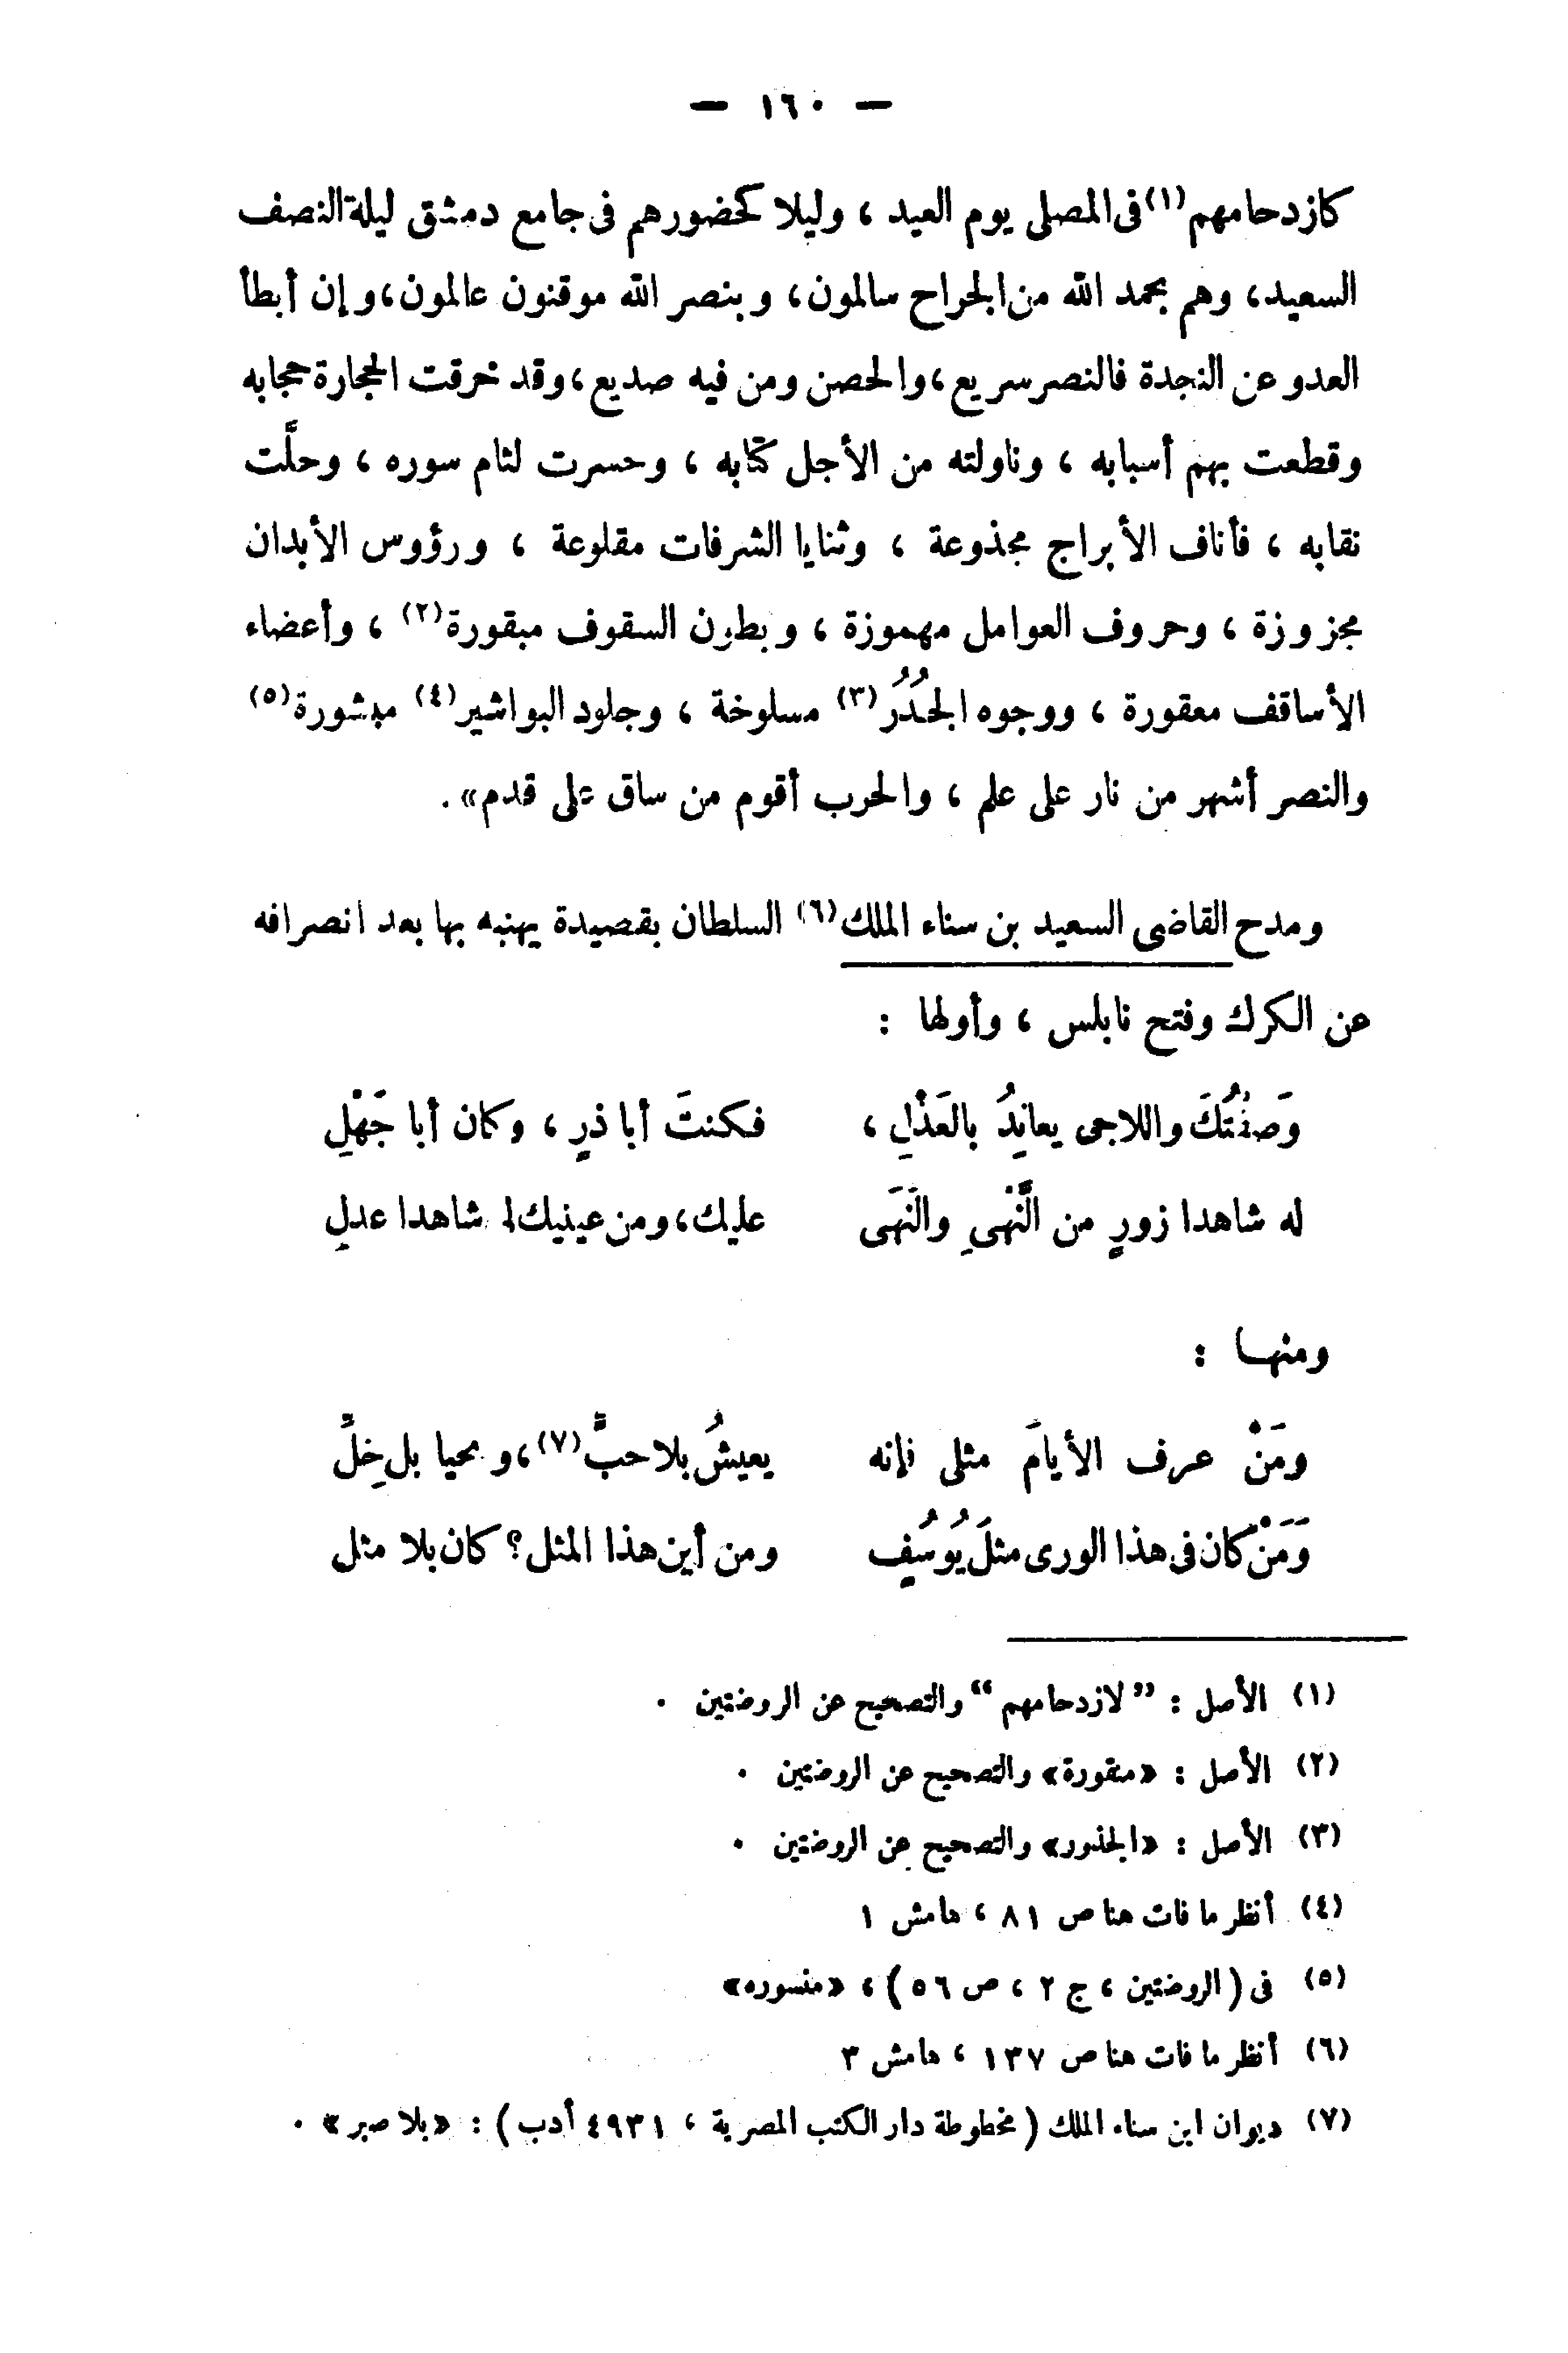 — ١٦٠ —
كازدحامهم (١) فى المصلى يوم العيد ، وليلا كحضورهم فى جامع دمشق ليلة النصف
السعيد ، وهم بحمد الله من الجراح سالمون ، وبنصر الله موقنون عالمون ، وإن أبطأ
العدو عن النجدة فالنصر سريع ، والحصن ومن فيه صديع ، وقد خرقت الحجارة حجابه
وقطعت بهم أسبابه ، وناولته من الأجل كتابه ، وحسرت لثام سوره ، وحلَّت
نقابه ، فأناف الأبراج مجذوعة ، وثنايا الشرفات مقلوعة ، ورؤوس الأبدان
مجزوزة ، وحروف العوامل مهموزة ، وبطون السقوف مبقورة (٢) ، وأعضاء
الأساقف معقورة ، ووجوه الجُدُر (٣) مسلوخة ، وجلود البواشير (٤) مبشورة (٥)
والنصر أشهر من نار على علم ، والحرب أقوم من ساق على قدم» .
ومدح القاضى السعيد بن سناء الملك (٦) السلطان بقصيدة يهنيه بها بعد انصرافه
عن الكرك وفتح نابلس ، وأولها :
وَصَفْتُكَ واللاحى يعانِدُ بالعَذْلِ ، فكنتَ أبا ذرٍ ، وكان أبا جَهْلِ
له شاهدا زورٍ من النَّهْىِ والنَّهَى عليك ، ومن عينيك لى شاهدا عدلِ
ومنها :
ومَنْ عرف الأيامَ مثلى فإنه يعيشُ بلا حبٍّ (٧) ، ويحيا بلا خِلِّ
وَمَنْ كان فى هذا الورى مثلَ يُوسُفٍ ومن أين هذا المثل ؟ كان بلا مثل
(١) الأصل : ”لازدحامهم“ والتصحيح عن الروضتين .
(٢) الأصل : «منقورة» والتصحيح عن الروضتين .
(٣) الأصل : «الجذور» والتصحيح عن الروضتين .
(٤) أنظر ما فات هنا ص ٨١ ، هامش ١
(٥) فى (الروضتين ، ج ٢ ، ص ٥٦) ، «منسوره»
(٦) أنظر ما فات هنا ص ١٣٧ ، هامش ٣
(٧) ديوان ابن سناء الملك (مخطوطة دار الكتب المصرية ، ٤٩٣١ أدب) : «بلا صبر» .